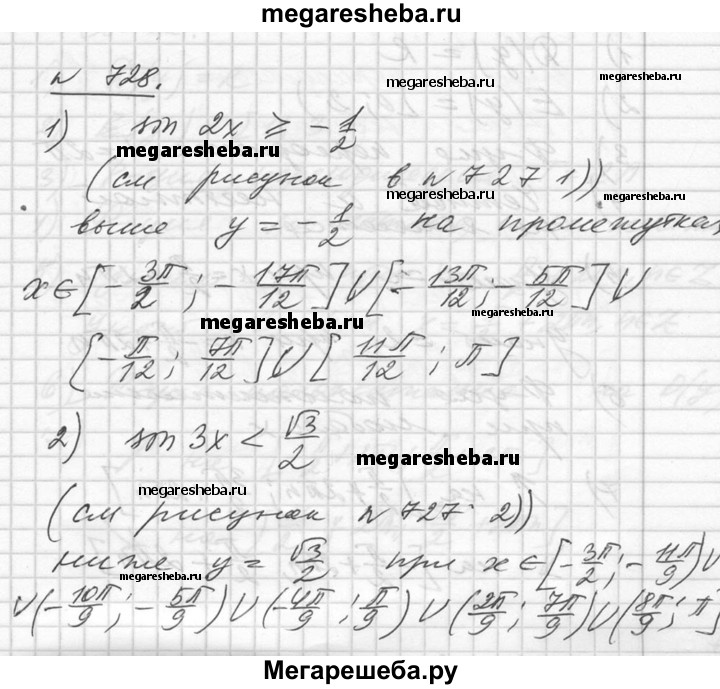 megaresheba.ru
n 728.
megaresheba.ru
megaresheba.ru
1) sin 2x ≥ -1/2
megaresheba.ru
(см рисунок в n 727 1))
выше y = -1/2 на промежутках
x ∈ [-3π/2; -17π/12] ∪ [-13π/12; -5π/12] ∪
megaresheba.ru
megaresheba.ru
[-π/12; 7π/12] ∪ [11π/12; π]
2) sin 3x < √3/2
megaresheba.ru
megaresheba.ru
(см рисунок n 727 2))
ниже y = √3/2 при x ∈ [-3π/2; -11π/9) ∪
megaresheba.ru
∪ (-10π/9; -5π/9) ∪ (-4π/9; π/9) ∪ (2π/9; 7π/9) ∪ (8π/9; π]
Мегарешеба.ру